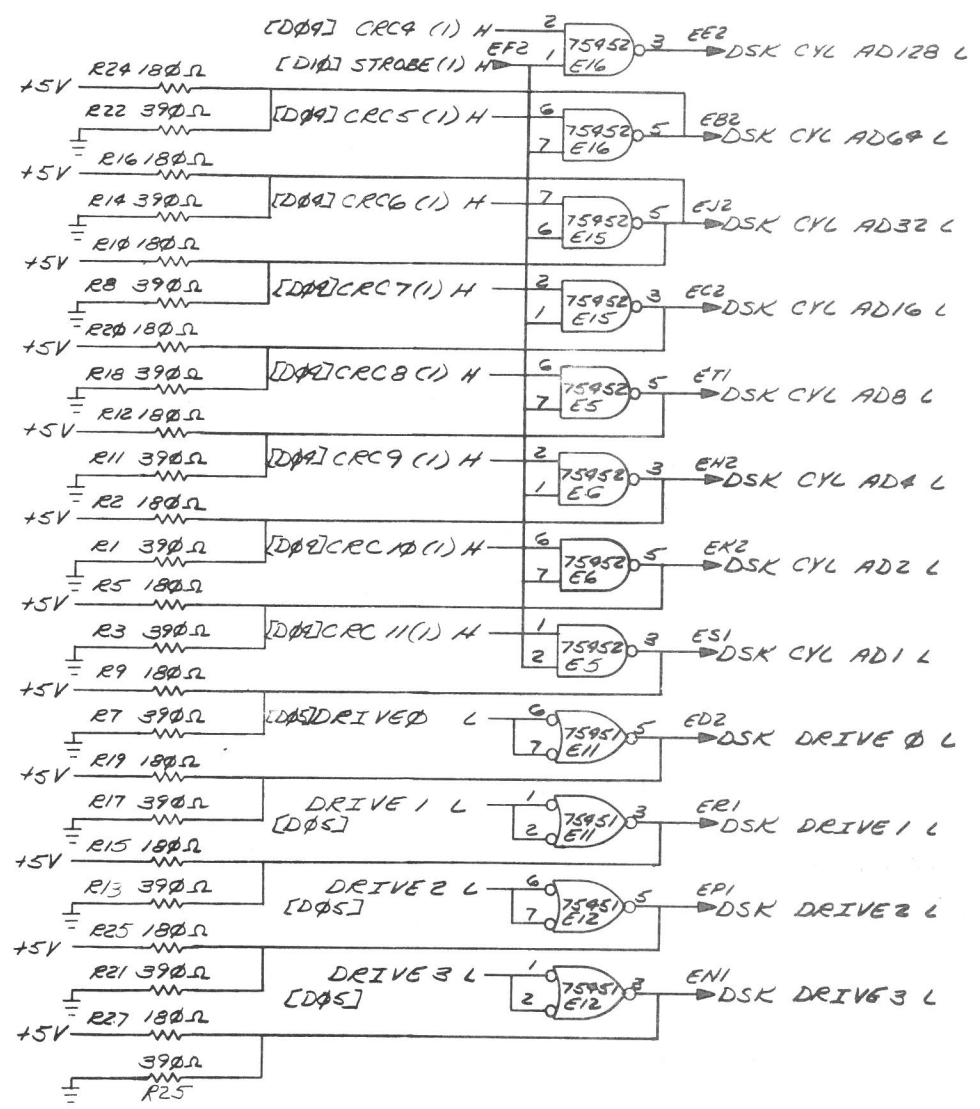 [DØ4] CRC4 (1) H 2 75452 E16 3 EE2 DSK CYL AD128 L
[D1Ø] STROBE (1) H EF2 1
+5V R24 18ØΩ
R22 39ØΩ [DØ4] CRC5 (1) H 6 7 75452 E16 5 EB2 DSK CYL AD64 L
+5V R16 18ØΩ
R14 39ØΩ [DØ4] CRC6 (1) H 7 6 75452 E15 5 EJ2 DSK CYL AD32 L
+5V R1Ø 18ØΩ
R8 39ØΩ [DØ4] CRC7 (1) H 2 1 75452 E15 3 EC2 DSK CYL AD16 L
+5V R2Ø 18ØΩ
R18 39ØΩ [DØ4] CRC8 (1) H 6 7 75452 E5 5 ET1 DSK CYL AD8 L
+5V R12 18ØΩ
R11 39ØΩ [DØ4] CRC9 (1) H 2 1 75452 E6 3 EH2 DSK CYL AD4 L
+5V R2 18ØΩ
R1 39ØΩ [DØ4] CRC 1Ø (1) H 6 7 75452 E6 5 EK2 DSK CYL AD2 L
+5V R5 18ØΩ
R3 39ØΩ [DØ4] CRC 11 (1) H 1 2 75452 E5 3 ES1 DSK CYL AD1 L
+5V R9 18ØΩ
R7 39ØΩ [DØ5] DRIVEØ L 6 7 75451 E11 5 ED2 DSK DRIVE Ø L
+5V R19 18ØΩ
R17 39ØΩ DRIVE 1 L [DØ5] 1 2 75451 E11 3 ER1 DSK DRIVE 1 L
+5V R15 18ØΩ
R13 39ØΩ DRIVE2 L [DØ5] 6 7 75451 E12 5 EP1 DSK DRIVE2 L
+5V R25 18ØΩ
R21 39ØΩ DRIVE 3 L [DØ5] 1 2 75451 E12 3 EN1 DSK DRIVE 3 L
+5V R27 18ØΩ
39ØΩ
R25